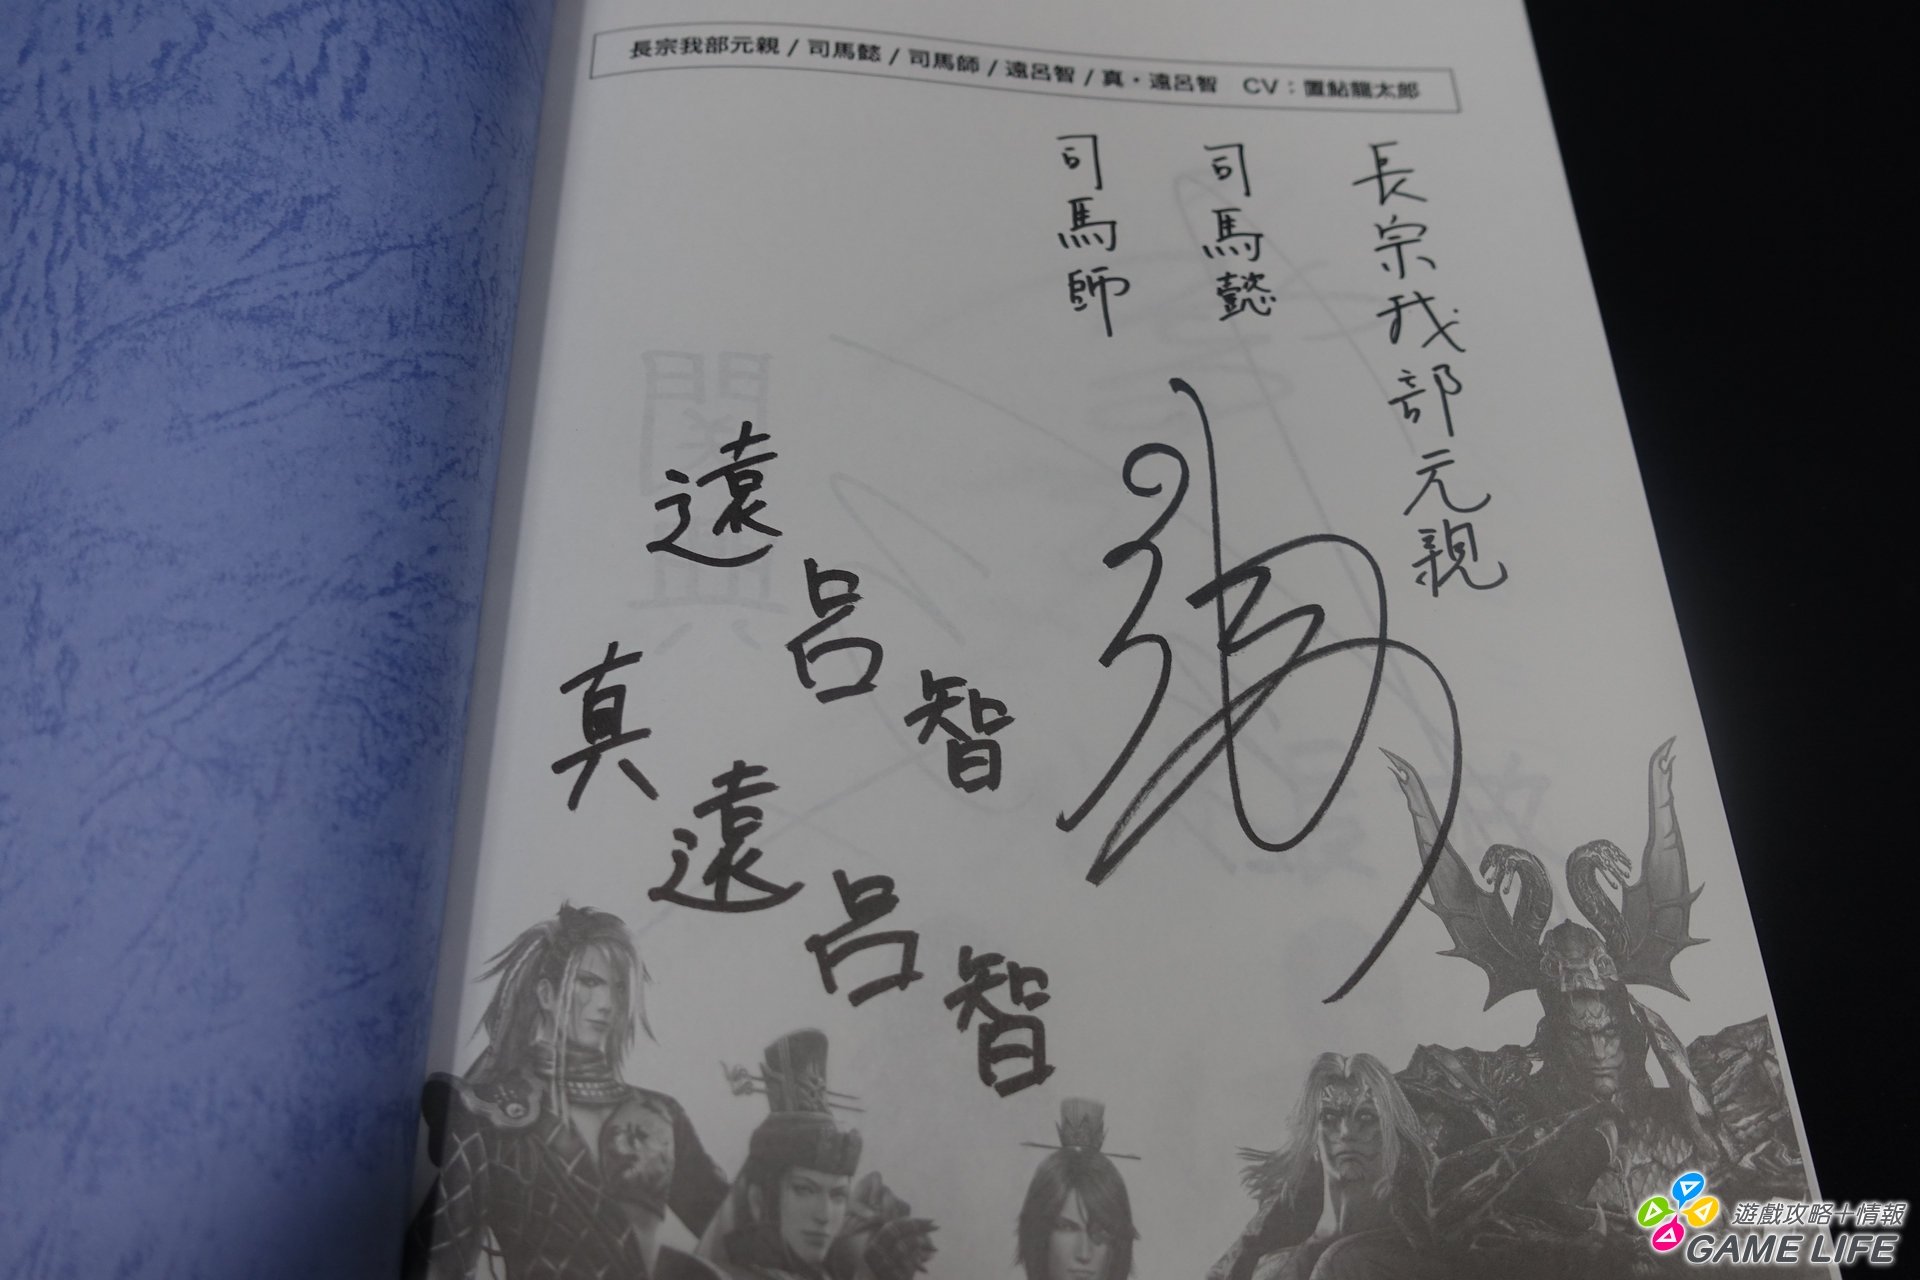 長宗我部元親 / 司馬懿 / 司馬師 / 遠呂智 / 真・遠呂智　CV：置鮎龍太郎
長宗我部元親
司馬懿
司馬師
遠呂智
真遠呂智
遊戲攻略+情報
GAME LIFE